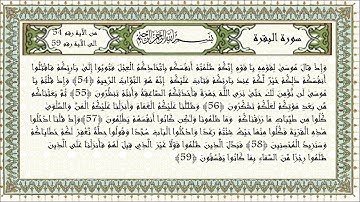 سورة البقرة
بسم الله الرحمن الرحيم
من الآية رقم 54
الى الآية رقم 59
وَإِذْ قَالَ مُوسَى لِقَوْمِهِ يَا قَوْمِ إِنَّكُمْ ظَلَمْتُمْ أَنْفُسَكُمْ بِاتِّخَاذِكُمُ الْعِجْلَ فَتُوبُوا إِلَى بَارِئِكُمْ فَاقْتُلُوا
أَنْفُسَكُمْ ذَلِكُمْ خَيْرٌ لَكُمْ عِنْدَ بَارِئِكُمْ فَتَابَ عَلَيْكُمْ إِنَّهُ هُوَ التَّوَّابُ الرَّحِيمُ (54) وَإِذْ قُلْتُمْ يَا
مُوسَى لَنْ نُؤْمِنَ لَكَ حَتَّى نَرَى اللَّهَ جَهْرَةً فَأَخَذَتْكُمُ الصَّاعِقَةُ وَأَنْتُمْ تَنْظُرُونَ (55) ثُمَّ بَعَثْنَاكُمْ
مِنْ بَعْدِ مَوْتِكُمْ لَعَلَّكُمْ تَشْكُرُونَ (56) وَظَلَّلْنَا عَلَيْكُمُ الْغَمَامَ وَأَنْزَلْنَا عَلَيْكُمُ الْمَنَّ وَالسَّلْوَى
كُلُوا مِنْ طَيِّبَاتِ مَا رَزَقْنَاكُمْ وَمَا ظَلَمُونَا وَلَكِنْ كَانُوا أَنْفُسَهُمْ يَظْلِمُونَ (57) وَإِذْ قُلْنَا ادْخُلُوا
هَذِهِ الْقَرْيَةَ فَكُلُوا مِنْهَا حَيْثُ شِئْتُمْ رَغَدًا وَادْخُلُوا الْبَابَ سُجَّدًا وَقُولُوا حِطَّةٌ نَغْفِرْ لَكُمْ خَطَايَاكُمْ
وَسَنَزِيدُ الْمُحْسِنِينَ (58) فَبَدَّلَ الَّذِينَ ظَلَمُوا قَوْلًا غَيْرَ الَّذِي قِيلَ لَهُمْ فَأَنْزَلْنَا عَلَى الَّذِينَ
ظَلَمُوا رِجْزًا مِنَ السَّمَاءِ بِمَا كَانُوا يَفْسُقُونَ (59)